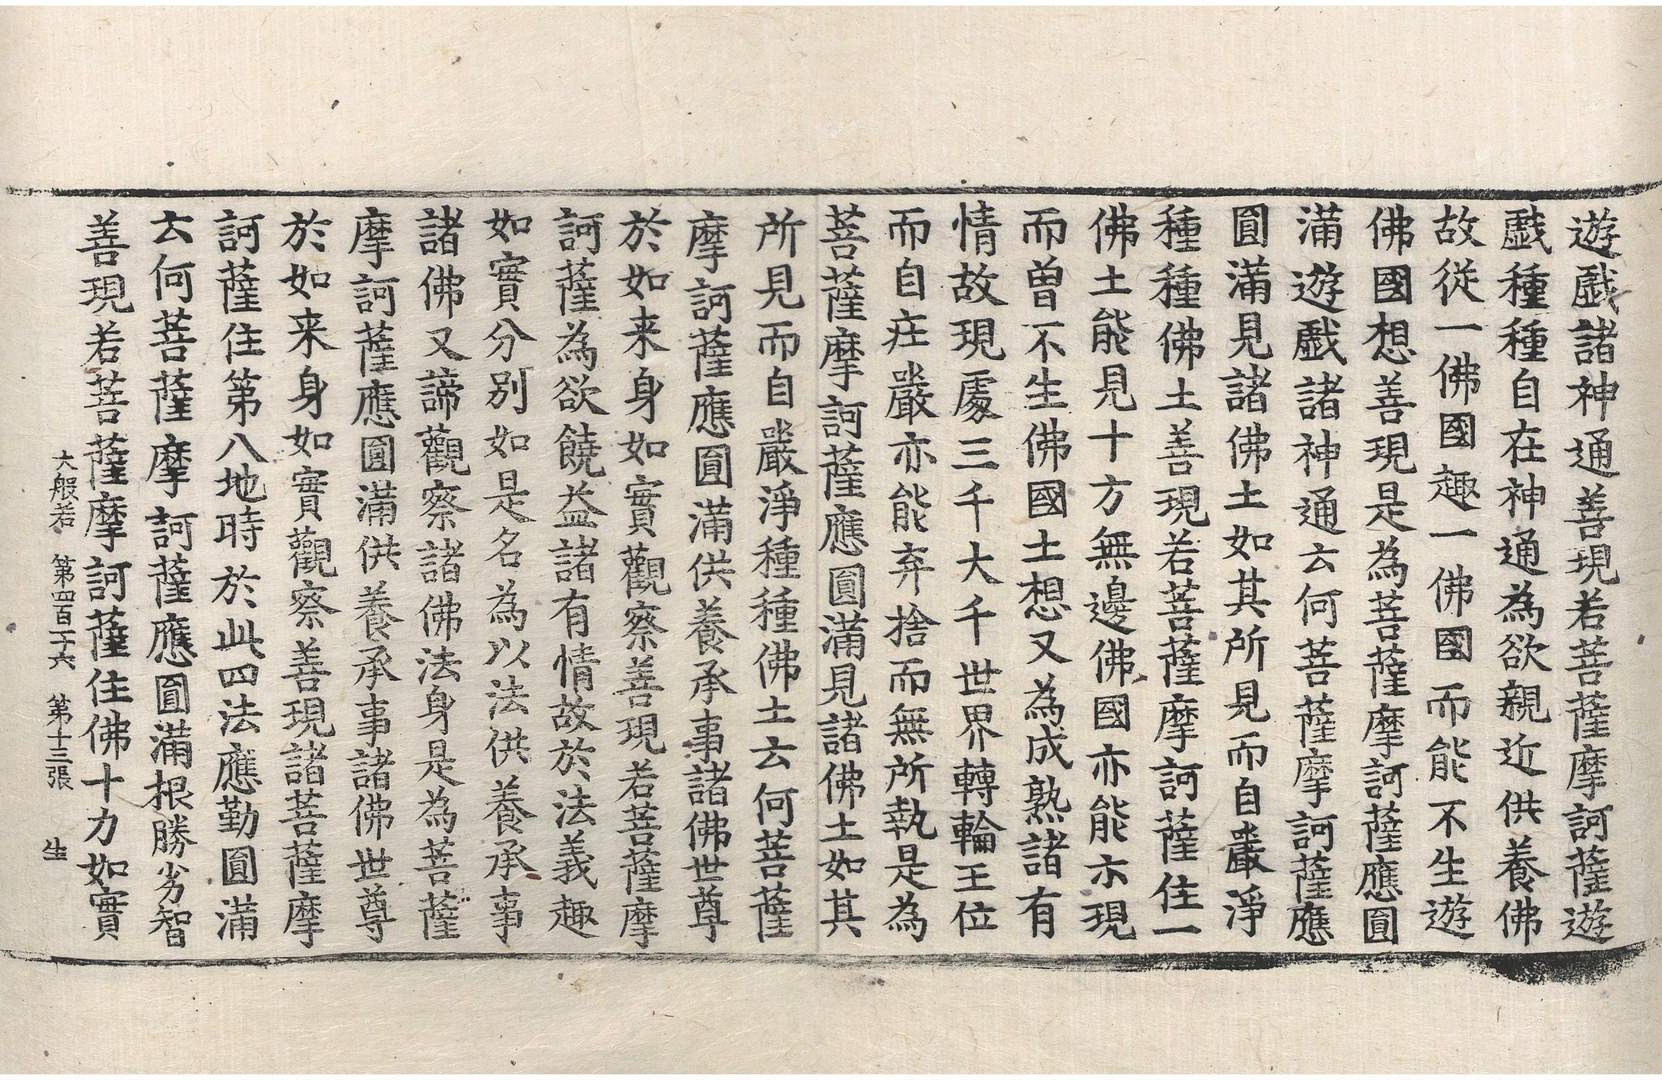 遊戱諸神通善現若菩薩摩訶薩遊
戱種種自在神通為欲親近供養佛
故從一佛國趣一佛國而能不生遊
佛國想善現是為菩薩摩訶薩應圓
滿遊戱諸神通云何菩薩摩訶薩應
圓滿見諸佛土如其所見而自嚴淨
種種佛土善現若菩薩摩訶薩住一
佛土能見十方無邊佛國亦能示現
而曾不生佛國土想又為成熟諸有
情故現處三千大千世界轉輪王位
而自庄嚴亦能弃捨而無所執是為
菩薩摩訶薩應圓滿見諸佛土如其
所見而自嚴淨種種佛土云何菩薩
摩訶薩應圓滿供養承事諸佛世尊
於如来身如實觀察善現若菩薩摩
訶薩為欲饒益諸有情故於法義趣
如實分別如是名為以法供養承事
諸佛又諦觀察諸佛法身是為菩薩
摩訶薩應圓滿供養承事諸佛世尊
於如来身如實觀察善現諸菩薩摩
訶薩住第八地時於此四法應勤圓滿
云何菩薩摩訶薩應圓滿根勝劣智
善現若菩薩摩訶薩住佛十力如實
大般若 第四百一十六 第十三張 生